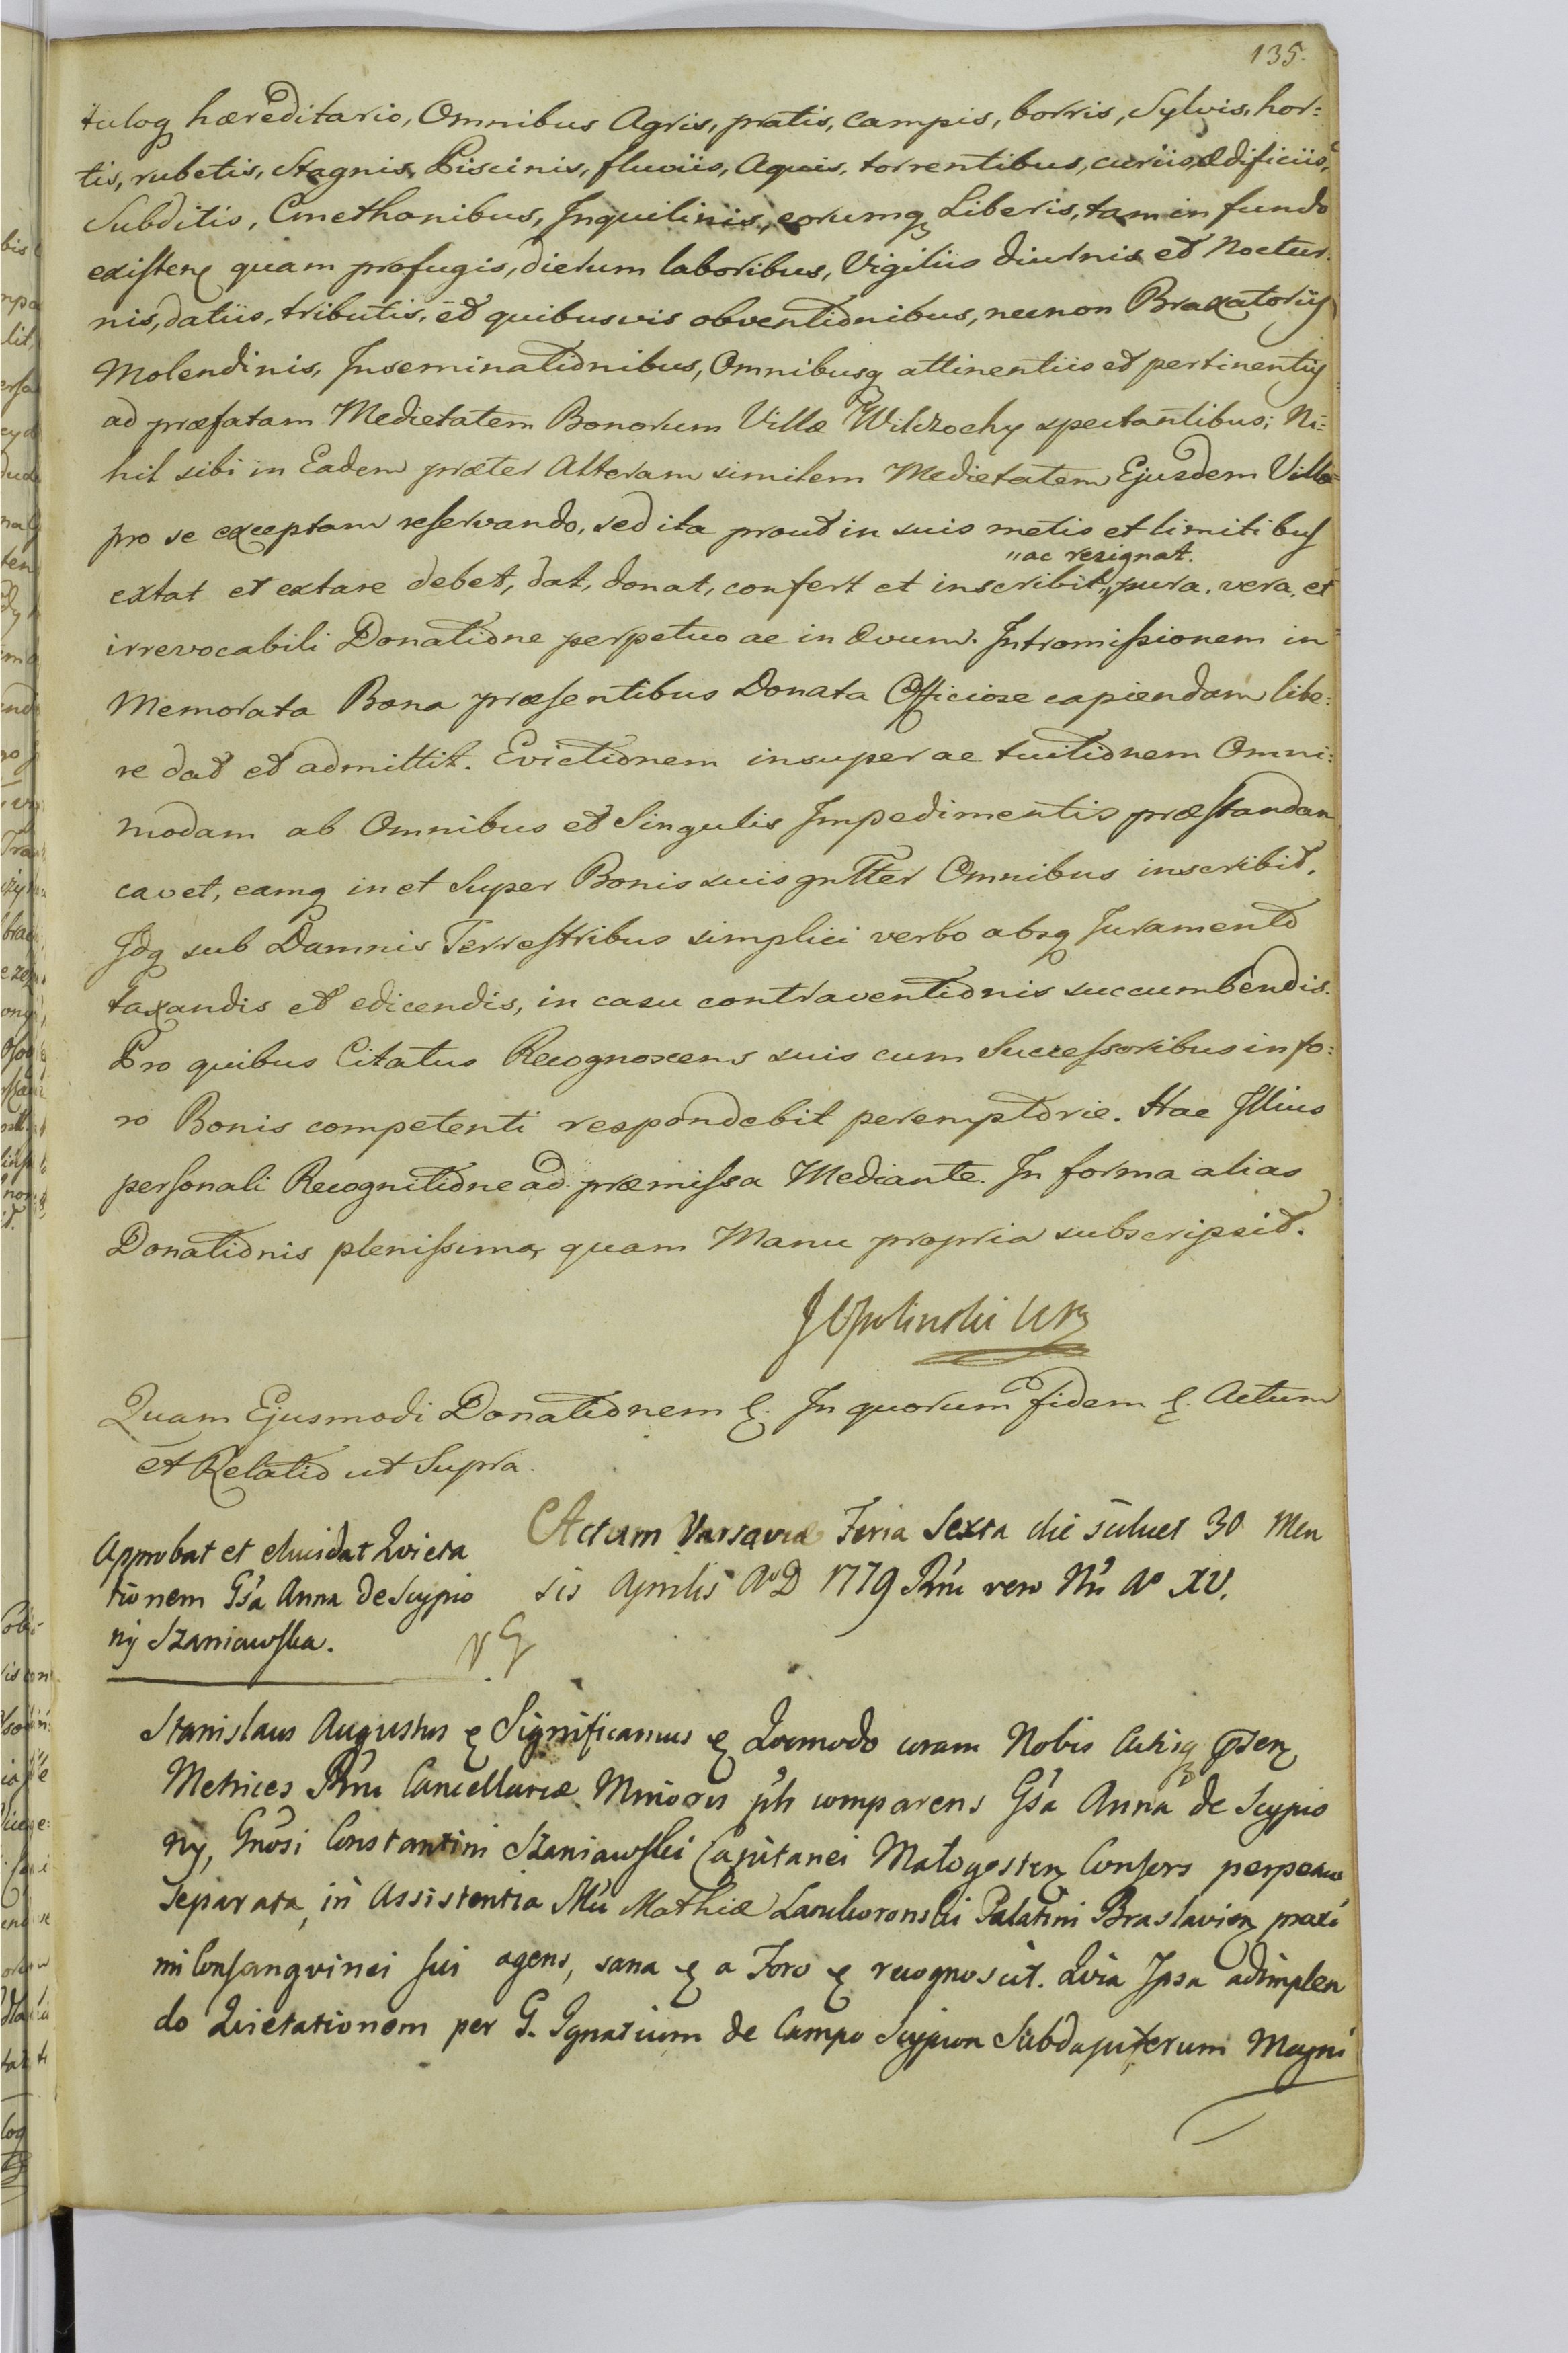 135.
tuloq hæreditario, Omnibus Agris, pratis, campis, borris, Sylvis, hor:
tis, rubetis, Stagnis, Piscinis, fluviis, Aquis, torrentibus, curiis, Ædificiis,
Subditis, Cmethonibus, Inquilinis, eorumq Liberis, tam in fundo
existen quam profugis, dierum laboribus, Vigiliis diurnis et Noctur:
nis, datiis, tributis, et quibusvis obventionibus, necnon Braxatoriis
Molendinis, Inseminationibus, Omnibusq attinentiis et pertinentiis
ad præfatam Medietatem Bonorum Villæ Wilczochy spectantibus; Ni:
hil sibi in Eadem præter Alteram similem Medietatem Ejusdem Villæ
pro se exceptam reservando, sed ita prout in suis metis et limitibus
"ac resignat.
extat et extare debet, dat, donat, confert et inscribit " pura, vera, et
irrevocabili Donatione perpetuo ac in Ævum. Intromissionem in
Memorata Bona præsentibus Donata Officiose capiendam libe:
re dat et admittit. Evictionem insuper ac tuitionem Omni:
modam ab Omnibus et Singulis Impedimentis præstandam
cavet, eamq in et Super Bonis suis gnTter Omnibus inscribit.
Idq sub Damnis Terrestribus simplici verbo absq Juramento
taxandis et edicendis, in casu contraventionis succumbendis.
Pro quibus Citatus Recognoscens suis cum Successoribus in fo:
ro Bonis competenti respondebit peremptorie. Hac Illius
personali Recognitione ad præmissa Mediante. In forma alias
Donationis plenissima, quam Manu propria subscripsit.
J Opolinski
Quam Ejusmodi Donationem &. In quorum fidem &. Actum
et Relatio ut Supra.
Approbat et elucidat Quieta
tionem Gsa Anna de Scypio
nÿ Szaniawska.
Actum Varsaviæ Feria Sexta die scilicet 30 Men
sis Aprilis Ao D 1779 Rni vero Nri Ao XV.
Stanislaus Augustus & Significamus & Quomodo coram Nobis Actisq pren
Metrices Rni Cancellariæ Minoris plr comparens Gsa Anna de Scypio
ny, Gnosi Constantini Szaniawski Capitanei Małogosten Consors perpetuo
separata, in Assistentia Mci Mathiæ Lanckoronski Palatini Braslavien proxi
mi Consangvinei sui agens, sana & a Foro & recognoscit. Quia Ipsa adimplen
do Quietationem per G. Ignatium de Campo Scypion Subdapiferum Magni